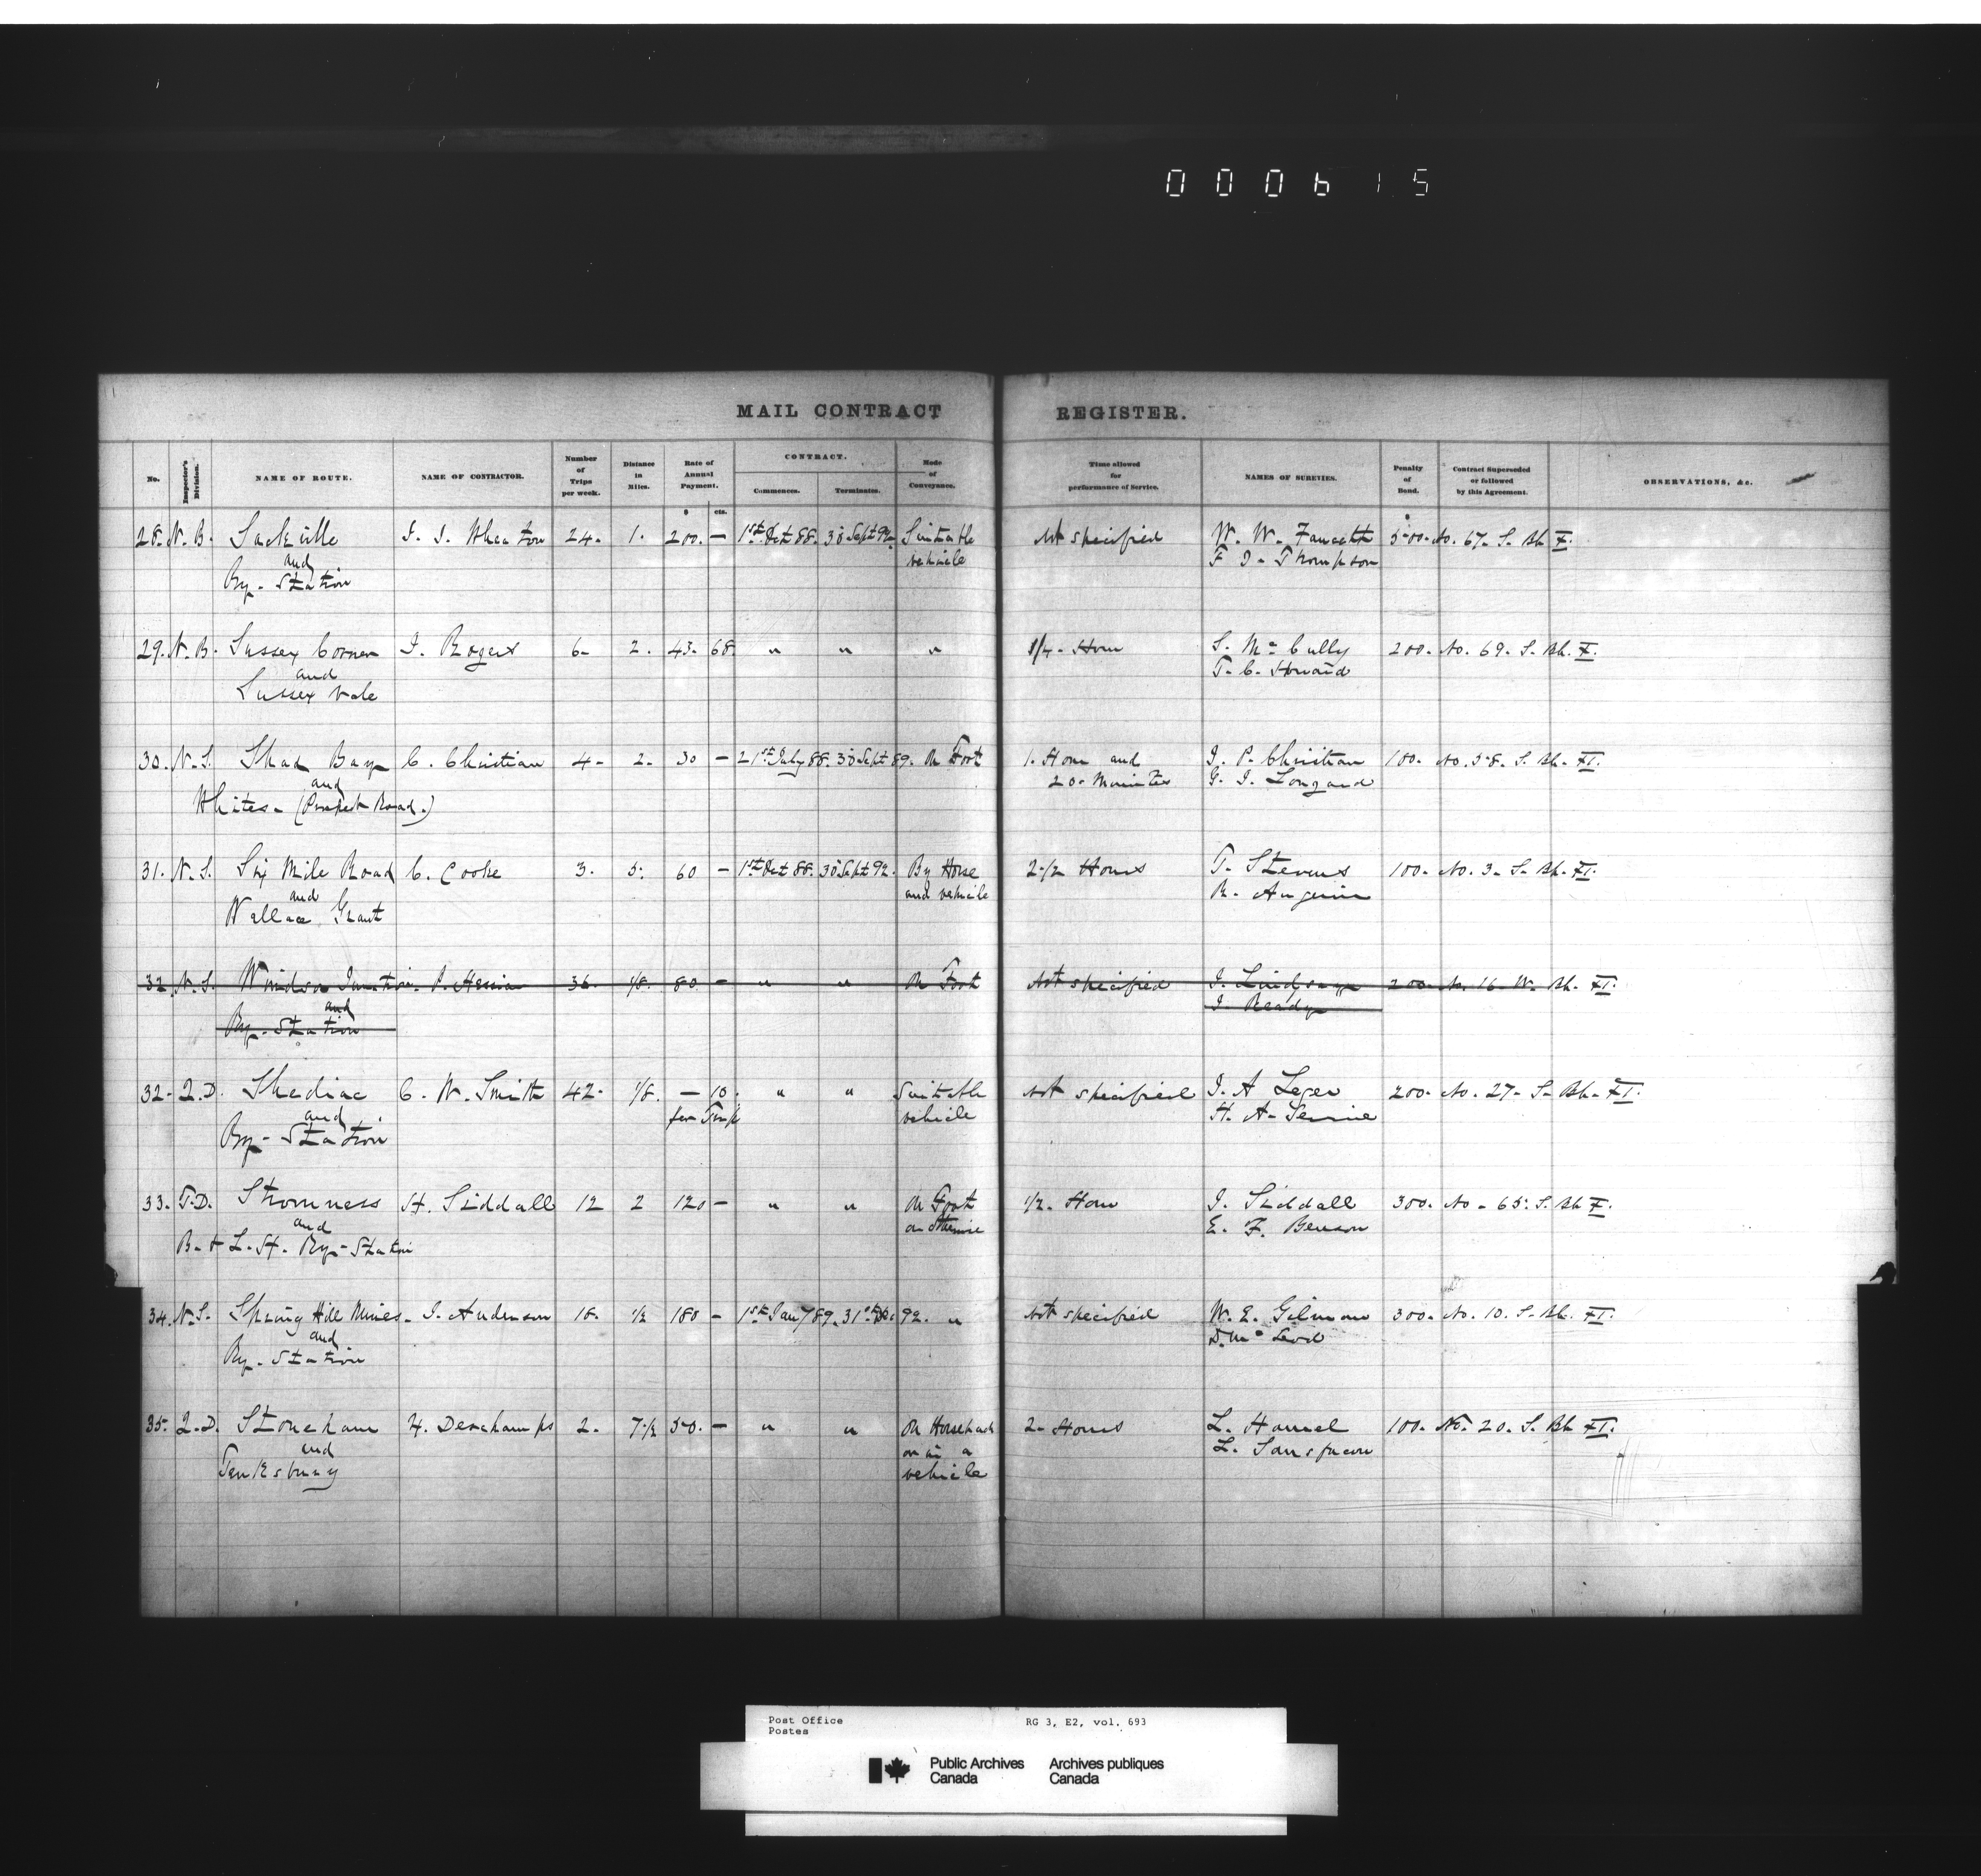 000615
MAIL CONTRACT REGISTER.
No. Inspector's Division. NAME OF ROUTE. NAME OF CONTRACTOR. Number of Trips per week. Distance in Miles. Rate of Annual Payment. $ cts. CONTRACT. Commences. Terminates. Mode of Conveyance. Time allowed for performance of Service. NAMES OF SUREVIES. Penalty of Bond. Contract Superseded or followed by this Agreement. OBSERVATIONS, &c.
28. N.B. Sackville J. J. Wheaton 24. 1. 200. — 1st Oct 88. 30 Sept 92. Suitable Not specified W. W. Fawcett 500. No. 67. S. Bk. X.
and vehicle F. J. Thompson
Ry. Station
29. N.B. Sussex Corner J. Rogers 6. 2. 43. 68. " " " 3/4 Hour S. McCully 200. No. 69. S. Bk. X.
and T. C. Howard
Sussex Vale
30. N.S. Shad Bay C. Christian 4. 2. 30 — 21st July 88. 30 Sept 89. On Foot 1. Hour and J. P. Christian 100. No. 58. S. Bk. XI.
and 20. Minutes G. J. Longard
Whites. (Prospect Road.)
31. N.S. Six Mile Road C. Cooke 3. 5. 60 — 1st Oct 88. 30 Sept 92. By Horse 2 1/2 Hours T. Stevens 100. No. 3. S. Bk. XI.
and and vehicle R. Angevin
Wallace Grant
32. N.S. Windsor Junction. P. Hessian 36. 1/8. 80. — " " On Foot Not specified J. Lindsay 200. No. 16. W. Bk. XI.
and J. Ready
Ry. Station
32. Q.D. Shediac C. W. Smith 42. 1/8. — 10. " " Suitable Not specified J. A. Leger 200. No. 27. S. Bk. XI.
and per Trip vehicle H. A.
Ry. Station
33. T.D. Stromness H. Siddall 12 2 120 — " " On Foot 1/2. Hour J. Siddall 300. No. 65. S. Bk. X.
and or otherwise E. F. Benson
B. & L. H. Ry. Station
34. N.S. Spring Hill Mines. J. Anderson 18. 1/2 180 — 1st Jany 89. 31st Dec 92. " Not specified W. E. Gilmour 300. No. 10. S. Bk. XI.
and D. McLeod
Ry. Station
35. Q.D. Stoneham H. Deschamps 2. 7 1/2 50. — " " On Horseback 2. Hours L. Hamel 100. No. 20. S. Bk. XI.
and or in a L. Sansfacon
Tewkesbury vehicle
Post Office RG 3, E2, vol. 693
Postes
Public Archives Archives publiques
Canada Canada